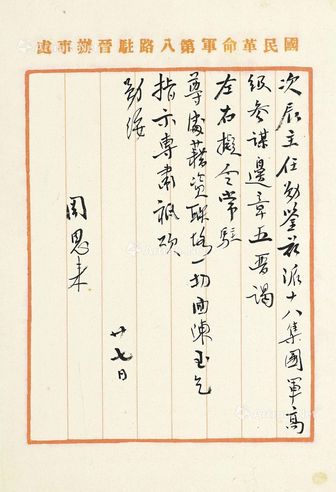 國民革命軍第八路駐晉辦事處
次辰主任勛鑒茲派十八集團軍高
級參謀邊章五晉謁
左右擬令常駐
尊處藉資聯絡一切面陳至乞
指示專肅祇頌
勛綏
周恩来
廿七日